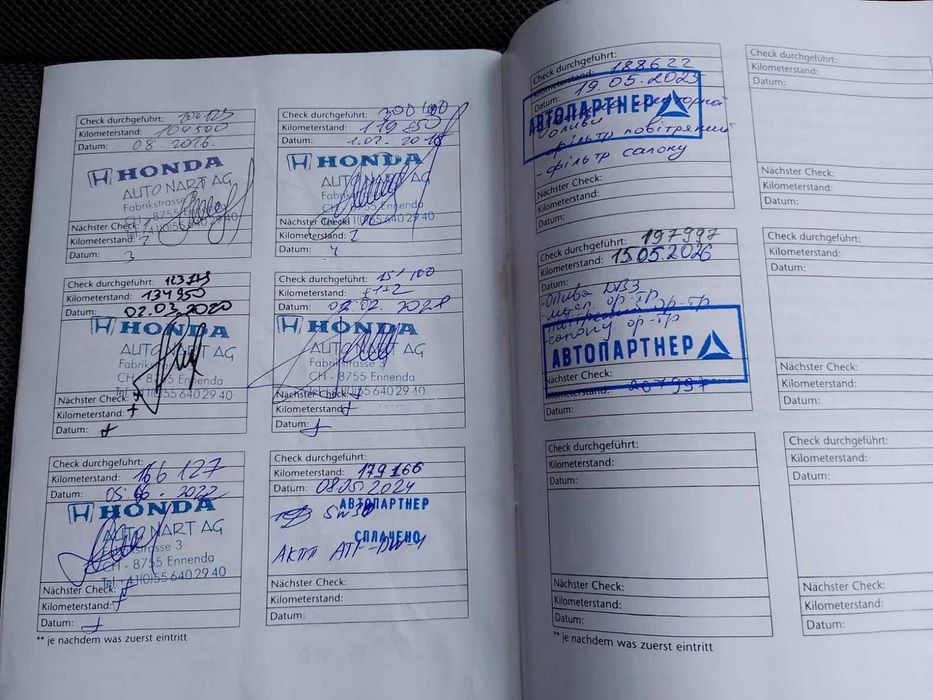 Check durchgeführt:
Kilometerstand: 104500
Datum: 08.2016.
HONDA
AUTO NART AG
Fabrikstrasse
CH - 8755 Ennenda
Tel. +41(0)55 640 29 40
Nächster Check:
Kilometerstand:
Datum:
Check durchgeführt:
Kilometerstand: 119 250
Datum: 1.02. 2018
HONDA
AUTO NART AG
Fabrikstrasse
CH - 8755 Ennenda
(0)55 640 29 40
Nächster Check:
Kilometerstand:
Datum:
Check durchgeführt:
Kilometerstand: 134950
Datum: 02.03.2020
HONDA
AUTO NART AG
Fabrikstrasse
CH - 8755 Ennenda
Tel. +41(0)55 640 29 40
Nächster Check:
Kilometerstand:
Datum:
Check durchgeführt:
Kilometerstand:
Datum: 02.02.
HONDA
AUTO NART AG
Fabrikstrasse
CH - 8755 Ennenda
Tel. +41(0)55 640 29 40
Nächster Check:
Kilometerstand:
Datum:
Check durchgeführt:
Kilometerstand: 166 127
Datum: 05.06.2022
HONDA
AUTO NART AG
Fabrikstrasse 3
CH - 8755 Ennenda
Tel. +41(0)55 640 29 40
Nächster Check:
Kilometerstand:
Datum:
Check durchgeführt:
Kilometerstand: 179166
Datum: 08.05.2024
АВТОПАРТНЕР
5W30
СПЛАЧЕНО
АКПП ATF-DW-1
Nächster Check:
Kilometerstand:
Datum:
** je nachdem was zuerst eintritt
Check durchgeführt:
Kilometerstand: 188622
Datum: 19.05.2025
АВТОПАРТНЕР
оливи
-фільтр повітряний
- фільтр салону
Nächster Check:
Kilometerstand:
Datum:
Check durchgeführt:
Kilometerstand:
Datum:
Nächster Check:
Kilometerstand:
Datum:
Check durchgeführt: 197997
Kilometerstand: 15.05.2026
Datum:
-Олива ДВЗ
АВТОПАРТНЕР
Nächster Check:
Kilometerstand: 207997
Datum:
Check durchgeführt:
Kilometerstand:
Datum:
Nächster Check:
Kilometerstand:
Datum:
Check durchgeführt:
Kilometerstand:
Datum:
Nächster Check:
Kilometerstand:
Datum:
Check durchgeführt:
Kilometerstand:
Datum:
Nächster Check:
Kilometerstand:
Datum:
** je nachdem was zuerst eintritt